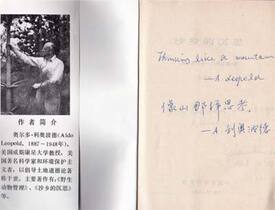 作者简介
奥尔多·利奥波德(Aldo
Leopold, 1887-1948年),
美国威斯康星大学教授,美
国著名科学家和环境保护主
义者,以倡导土地道德论著
称于世。主要著作有:《野生
动物管理》、《沙乡的沉思》
等。
Thinking like a mountain
—A Leopold
像山那样思考
—A 利奥波德